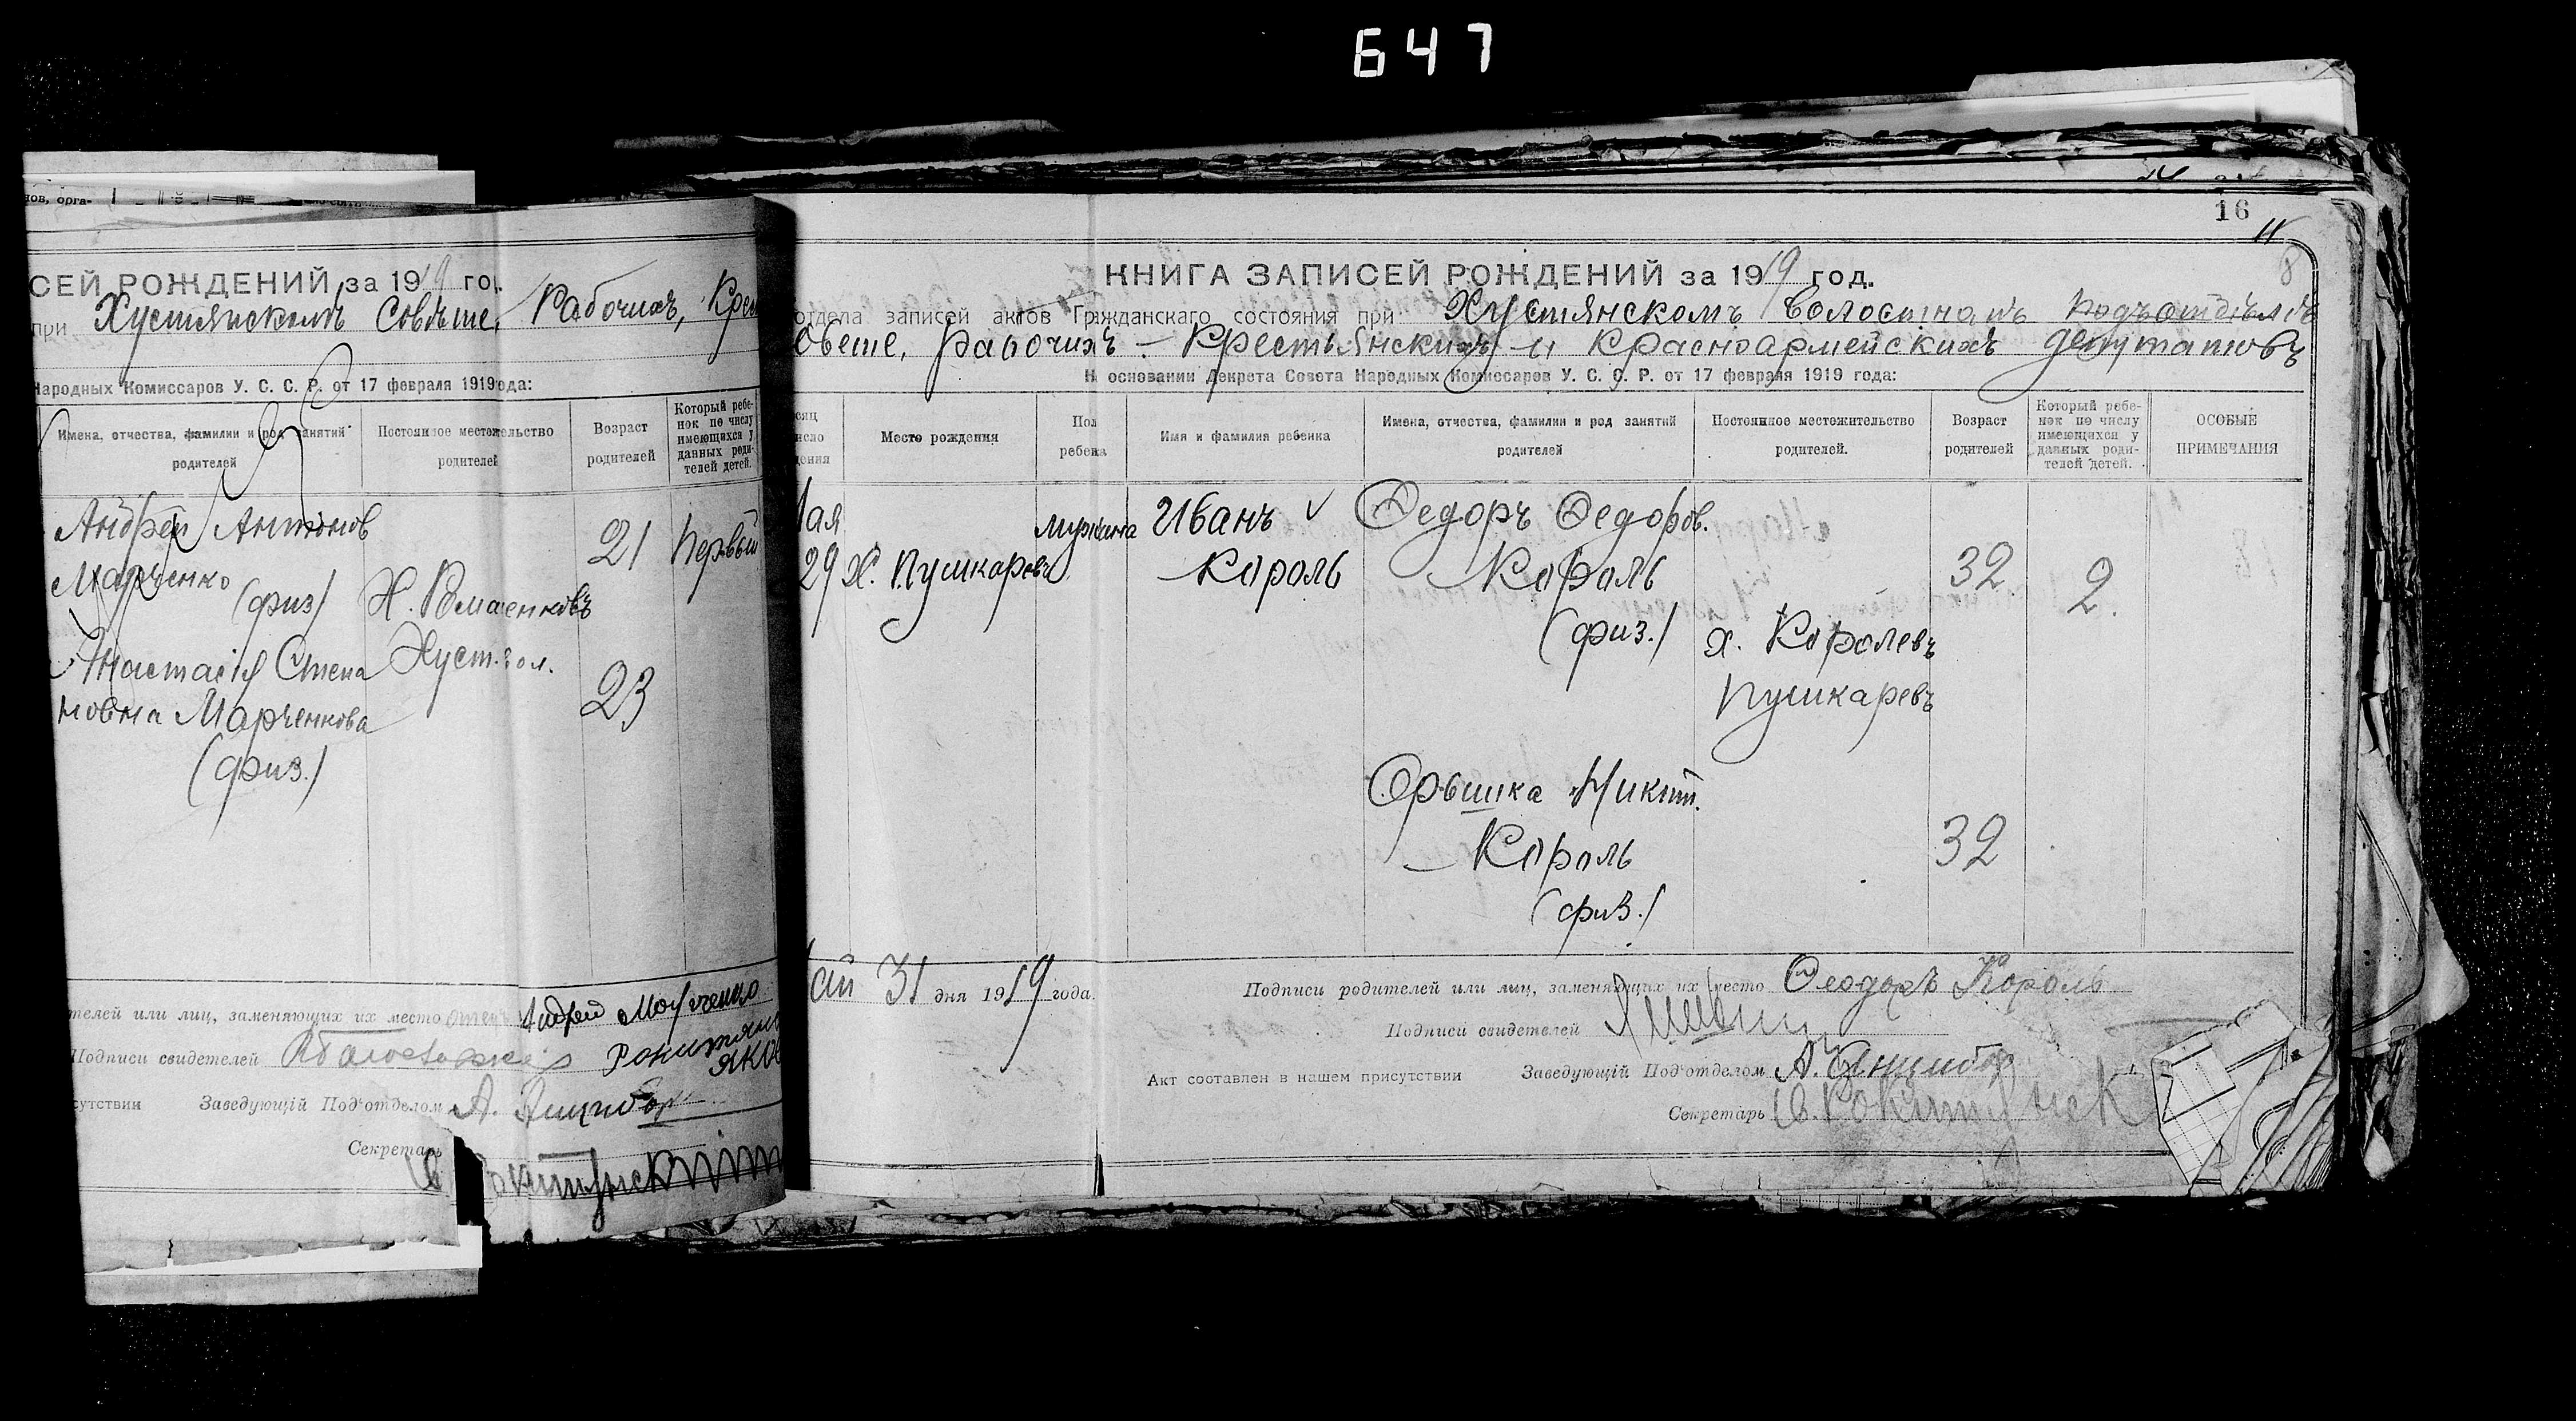 647
СЕЙ РОЖДЕНИЙ за 1919 го
при Хустянскомъ Совѣте, Рабочихъ, Крес
Народных Комиссаров У. С. С. Р. от 17 февраля 1919 ода:
Имена, отчества, фамилии и род занятий родителей
Постоянное местожительство родителей
Возраст родителей
Который ребе-
нок по числу
имеющихся у
данных роди-
телей детей.
Андрей Антонов
Марченко
(физ)
Х.
Хуст. вол.
21
Первый
Анастасія Степа
новна Марченкова
(физ.)
23
телей или лиц, заменяющих их место Андрей
Подписи свидетелей
сутствии Заведующій Под'отделом А.
Секретарь
16
КНИГА ЗАПИСЕЙ РОЖДЕНИЙ за 1919 год.
отдела записей актов Гражданскаго состояния при Хустянскомъ Волостномъ Подъотдѣлѣ
овете, Рабочихъ - Крестьянскихъ и Красноармейскихъ депутатовъ
На основании Декрета Совета Народных Комиссаров У. С. С. Р. от 17 февраля 1919 года:
сяц
исло
дения
Место рождения
Пол
ребенка
Имя и фамилия ребенка
Имена, отчества, фамилии и род занятий
родителей
Постоянное местожительство
родителей.
Возраст
родителей
Который ребе-
нок по числу
имеющихся у
данных роди-
телей детей.
ОСОБЫЕ
ПРИМЕЧАНИЯ
ая
29
Х. Пушкаревъ
мужчина
Иванъ
Король
Федоръ Федоров.
Король
(физ.)
х. Королевъ
Пушкаревъ
32
2.
Орышка Никит.
Король
(физ.)
32
ай 31 дня 1919 года.
Подписи родителей или лиц, заменяющих их место Феодоръ Король
Подписи свидетелей
Акт составлен в нашем присутствии Заведующій Под'отделом А.
Секретарь